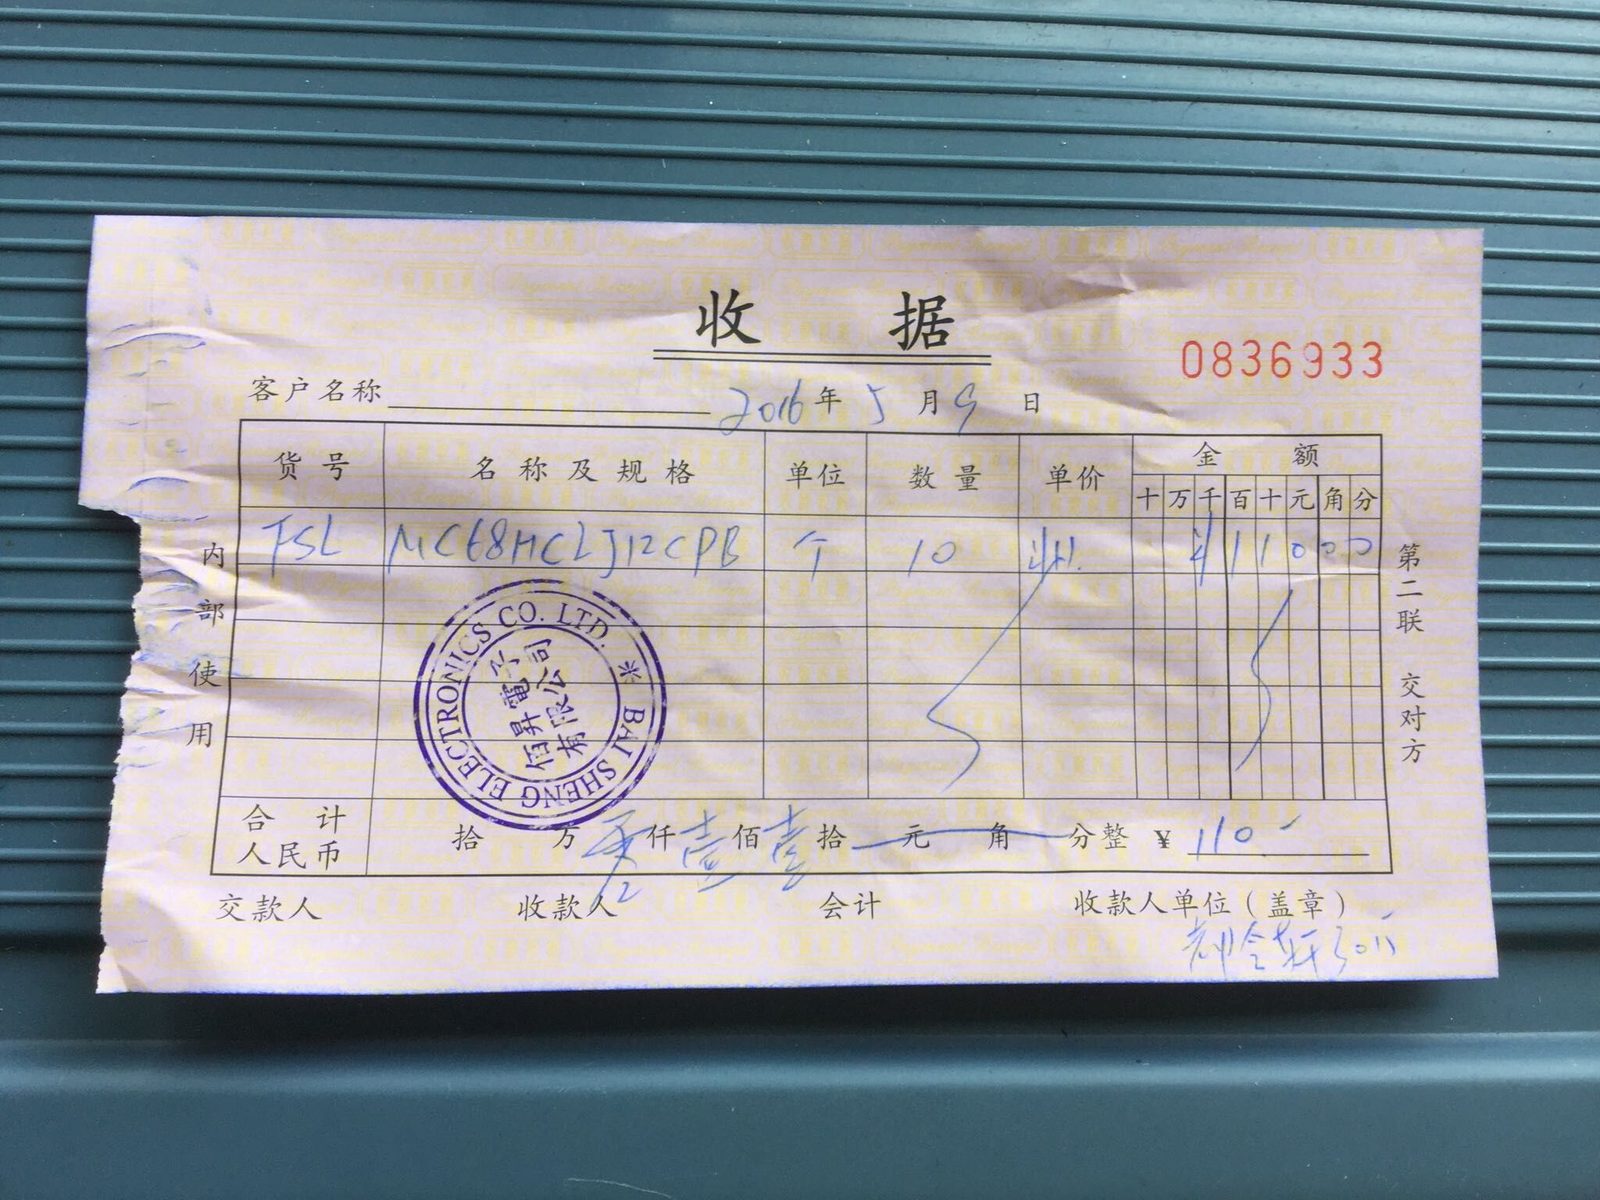 收 据
0836933
客户名称 2016年5月9日
货号 名称及规格 单位 数量 单价 金额
十 万 千 百 十 元 角 分
FSL MC68HCLJ12CPB 个 10 11.- ¥ 1 1 0 0 0
内部使用
第二联 交对方
BAI SHENG ELECTRONICS CO. LTD. *
佰昇電子
有限公司
合计
人民币
拾 万 零仟壹佰壹拾 元 角 分整 ¥ 110 -
交款人 收款人 会计 收款人单位(盖章)